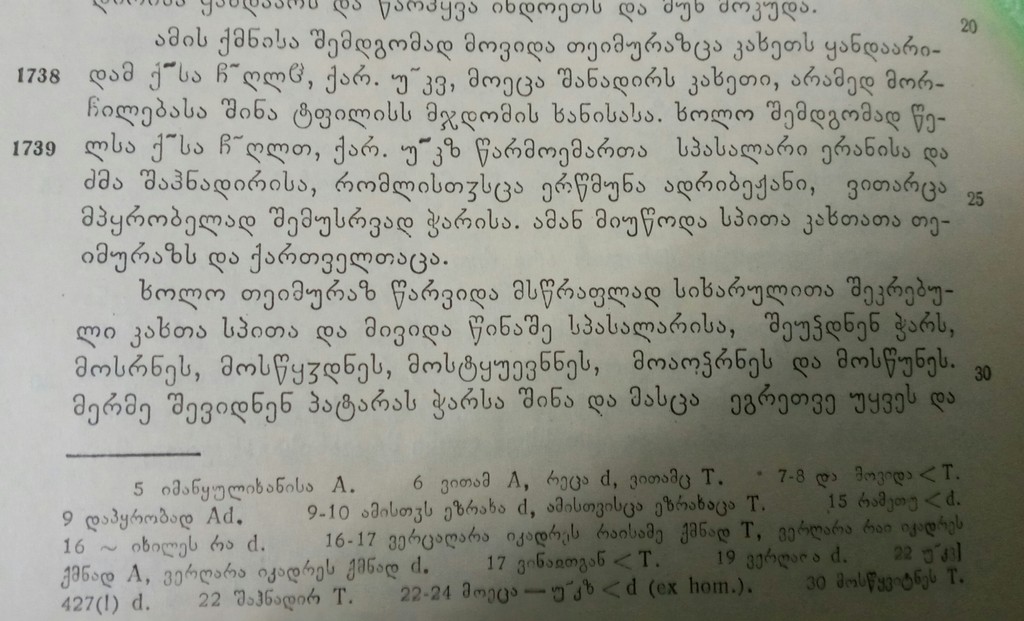 და წარჰყვა ინდოეთს და მუნ მოკუდა.
20
ამის ქმნისა შემდგომად მოვიდა თეიმურაზცა კახეთს ყანდაარი-
1738 დამ ქ~სა ჩ~ღლჱ, ქარ. უ~კვ, მოეცა შანადირს კახეთი, არამედ მორ-
ჩილებასა შინა ტფილისს მჯდომის ხანისასა. ხოლო შემდგომად წე-
1739 ლსა ქ~სა ჩ~ღლთ, ქარ. უ~კზ წარმოემართა სპასალარი ერანისა და
ძმა შაჰნადირისა, რომლისთჳსცა ერწმუნა ადრიბეჟანი, ვითარცა 25
მპყრობელად შემუსრვად ჭარისა. ამან მიუწოდა სპითა კახთათა თე-
იმურაზს და ქართველთაცა.
ხოლო თეიმურაზ წარვიდა მსწრაფლად სიხარულითა შეკრებუ-
ლი კახთა სპითა და მივიდა წინაშე სპასალარისა, შეუჴდნენ ჭარს,
მოსრნეს, მოსწყჳდნეს, მოსტყუევნნეს, მოაოჴრნეს და მოსწუნეს. 30
მერმე შევიდნენ პატარას ჭარსა შინა და მასცა ეგრეთვე უყვეს და
5 იმანყულიხანისა A. 6 ვითამ A, რეცა d, ვითამც T. 7-8 და მოვიდა < T.
9 დაპყრობად Ad. 9-10 ამისთჳს ეზრახა d, ამისთვისცა ეზრახაცა T. 15 რამეთუ < d.
16 ~ იხილეს რა d. 16-17 ვერცაღარა იკადრეს რაისამე ქმნად T, ვერღარა რაი იკადრეს
ქმნად A, ვერღარა იკადრეს ქმნად d. 17 ვინაითგან < T. 19 ვერღარა d. 22
427(!) d. 22 შაჰნადირ T. 22-24 მოეცა — უ~კზ < d (ex hom.). 30 მოსწყვიტნეს T.